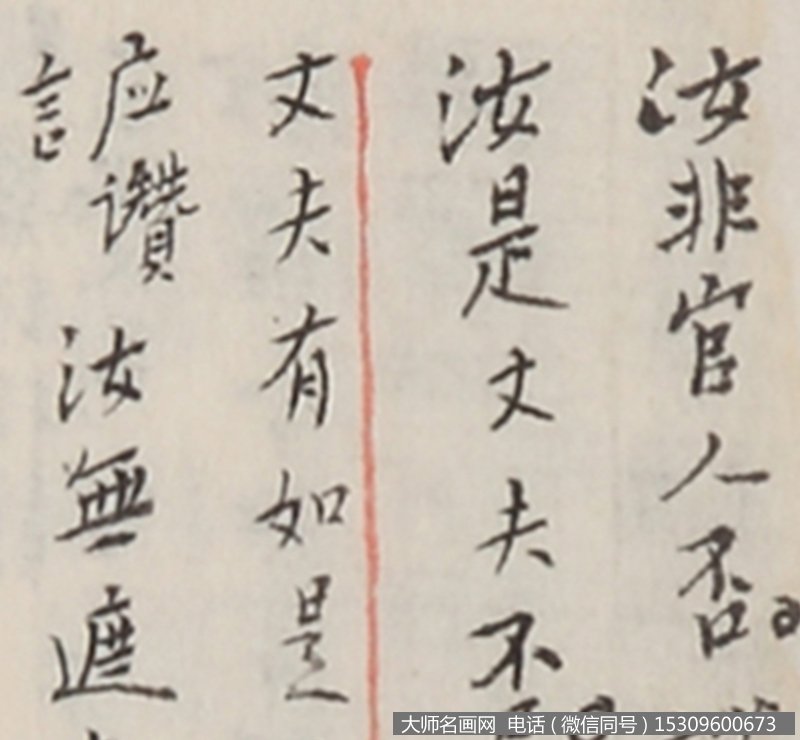 汝非官人否
汝是丈夫不
丈夫有如是
应讚汝無遮
言
大师名画网 电话（微信同号）15309600673